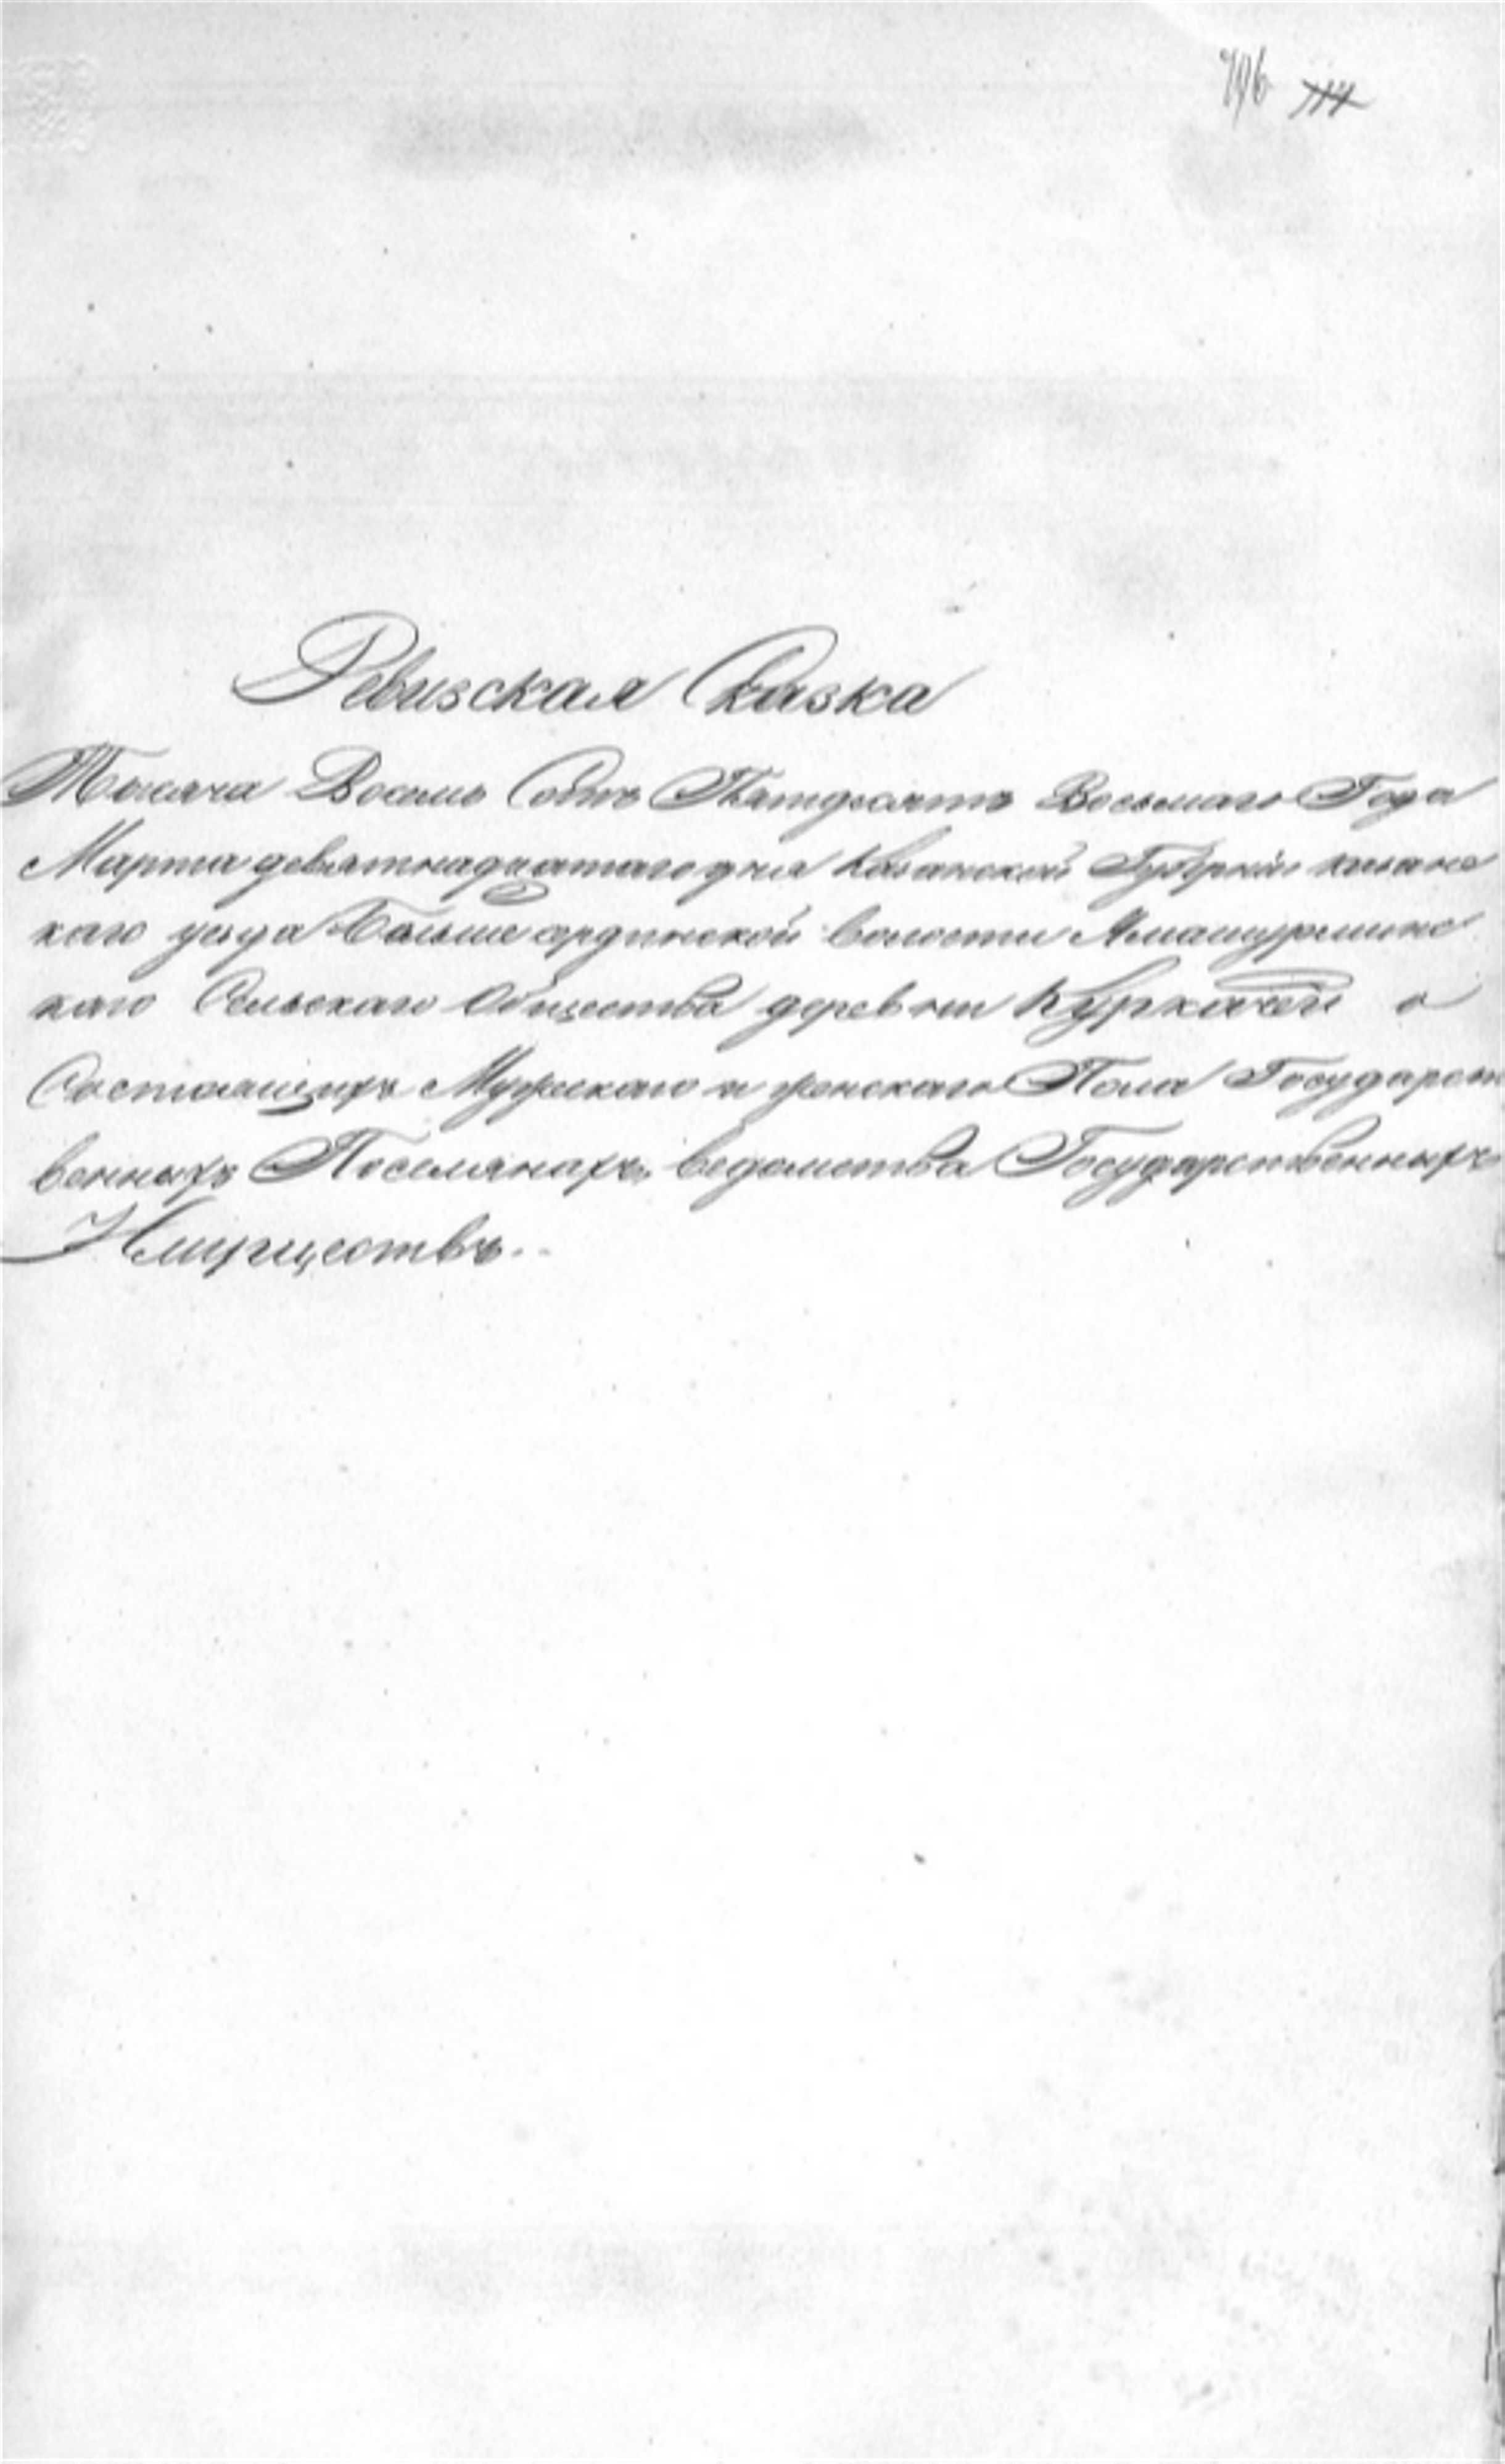 Ревизская Сказка
Тысяча Восемь Сотъ Пятдесятъ Восьмаго Года
Марта девятнадцатаго дня Казанской Губерніи казанс
каго уезда Больше ардинской волости
каго Сельскаго Общества деревни Куркачей о
Состоящихъ Мужскаго и женскаго Пола Государст
венныхъ Поселянахъ ведомства Государственныхъ
Имуществъ.